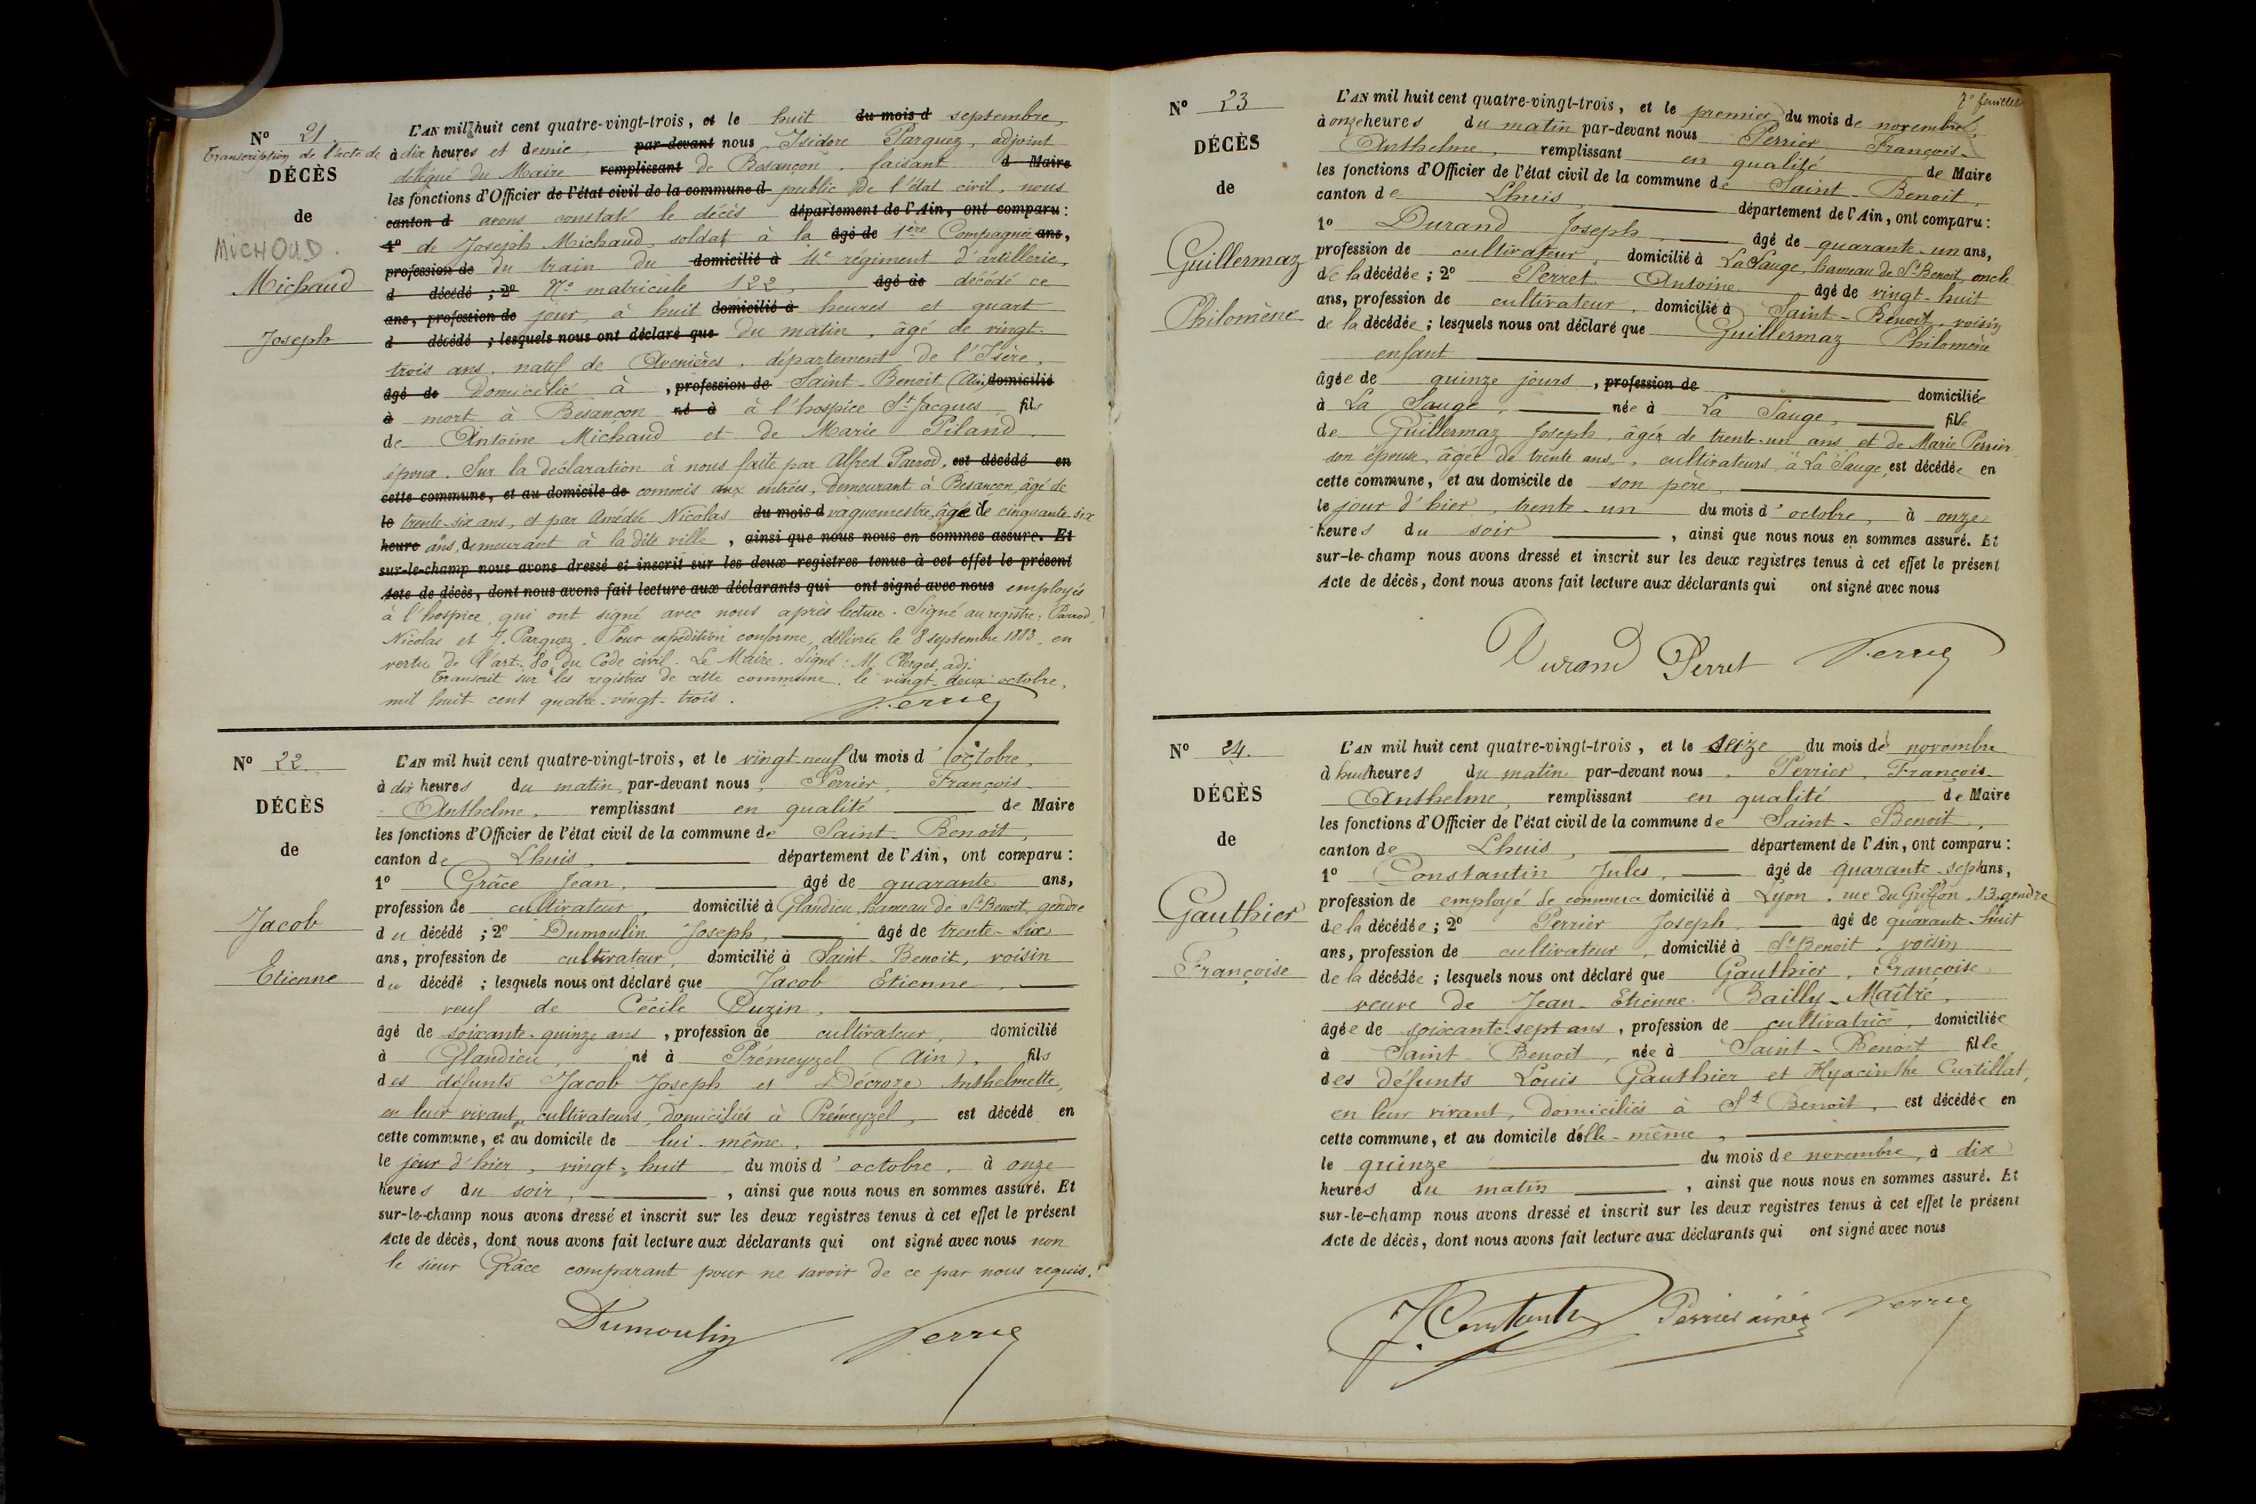 N° 21
Transcription de l'acte de
DÉCÈS
de
MICHOUD.
Michaud
Joseph
L'AN mil huit cent quatre-vingt-trois, et le huit du mois d septembre,
à dix heures et demie, par-devant nous Isidore Parguez, adjoint
délégué du Maire remplissant de Besançon, faisant d Maire
les fonctions d'Officier de l'état civil de la commune d public de l'état civil, nous
canton d avons constaté le décès département de l'Ain, ont comparu :
1° de Joseph Michaud, soldat à la âgé de 1ère Compagnie ans,
profession de du train du domicilié à 4e régiment d'artillerie,
d décédé ; 2° N° matricule 122, âgé de décédé ce
ans, profession de jour, à huit domicilié à heures et quart
d décédé ; lesquels nous ont déclaré que du matin, âgé de vingt-
trois ans, natif de Avenières, département de l'Isère,
âgé de Domicilié à , profession de Saint-Benoit (Ain) domicilié
à mort à Besançon né à à l'hospice St Jacques fils
de Antoine Michaud et de Marie Piland,
époux. Sur la déclaration à nous faite par Alfred Parrod, est décédé en
cette commune, et au domicile de commis aux entrées, demeurant à Besançon, âgé de
le trente-six ans, et par Amédée Nicolas du mois d vaguemestre, âgé de cinquante-six
heure ans, demeurant à la dite ville, ainsi que nous nous en sommes assuré. Et
sur-le-champ nous avons dressé et inscrit sur les deux registres tenus à cet effet le présent
Acte de décès, dont nous avons fait lecture aux déclarants qui ont signé avec nous employés
à l'hospice, qui ont signé avec nous après lecture. Signé au registre : Parrod,
Nicolas et I. Parguez. Pour expédition conforme, délivrée le 8 septembre 1883, en
vertu de l'art. 80 du Code civil. Le Maire. Signé : M. Clerget, adj.
Transcrit sur les registres de cette commune, le vingt-deux octobre,
mil huit cent quatre-vingt-trois.
Perrier
N° 22
DÉCÈS
de
Jacob
Etienne
L'AN mil huit cent quatre-vingt-trois, et le vingt-neuf du mois d'octobre,
à dix heures du matin, par-devant nous, Perrier, François-
Anthelme, remplissant en qualité de Maire
les fonctions d'Officier de l'état civil de la commune de Saint-Benoit,
canton de Lhuis, département de l'Ain, ont comparu :
1° Grâce Jean, âgé de quarante ans,
profession de cultivateur, domicilié à Glandieu, hameau de St Benoit, gendre
du décédé ; 2° Dumoulin Joseph, âgé de trente-six
ans, profession de cultivateur, domicilié à Saint-Benoit, voisin
du décédé ; lesquels nous ont déclaré que Jacob Etienne,
veuf de Cécile Puzin,
âgé de soixante-quinze ans, profession de cultivateur, domicilié
à Glandieu, né à Prémeyzel (Ain), fils
des défunts Jacob Joseph et Décroze Anthelmette,
en leur vivant, cultivateurs, domiciliés à Prémeyzel, est décédé en
cette commune, et au domicile de lui-même,
le jour d'hier, vingt-huit du mois d'octobre, à onze
heures du soir, , ainsi que nous nous en sommes assuré. Et
sur-le-champ nous avons dressé et inscrit sur les deux registres tenus à cet effet le présent
Acte de décès, dont nous avons fait lecture aux déclarants qui ont signé avec nous non
le sieur Grâce comparant pour ne savoir de ce par nous requis.
Dumoulin Perrier
7e feuillet
N° 23
DÉCÈS
de
Guillermaz
Philomène
L'AN mil huit cent quatre-vingt-trois, et le premier du mois de novembre,
à onze heures du matin par-devant nous Perrier François-
Anthelme, remplissant en qualité de Maire
les fonctions d'Officier de l'état civil de la commune de Saint-Benoit,
canton de Lhuis, département de l'Ain, ont comparu :
1° Durand Joseph, âgé de quarante-un ans,
profession de cultivateur, domicilié à La Sauge, hameau de St Benoit, oncle
de la décédée ; 2° Perret Antoine âgé de vingt-huit
ans, profession de cultivateur, domicilié à Saint-Benoit, voisin
de la décédée ; lesquels nous ont déclaré que Guillermaz Philomène
enfant
âgée de quinze jours, profession de domiciliée
à La Sauge, née à La Sauge, fille
de Guillermaz Joseph, âgée de trente-un ans et de Marie Perrier
son épouse, âgée de trente ans, cultivateurs, à La Sauge, est décédée en
cette commune, et au domicile de son père,
le jour d'hier, trente-un du mois d'octobre, à onze
heures du soir , ainsi que nous nous en sommes assuré. Et
sur-le-champ nous avons dressé et inscrit sur les deux registres tenus à cet effet le présent
Acte de décès, dont nous avons fait lecture aux déclarants qui ont signé avec nous
Durand Perret Perrier
N° 24.
DÉCÈS
de
Gauthier
Françoise
L'AN mil huit cent quatre-vingt-trois, et le seize du mois de novembre
à huit heures du matin par-devant nous, Perrier, François-
Anthelme, remplissant en qualité de Maire
les fonctions d'Officier de l'état civil de la commune de Saint-Benoit,
canton de Lhuis, département de l'Ain, ont comparu :
1° Constantin Jules, âgé de quarante-sept ans,
profession de employé de commerce domicilié à Lyon, rue du Griffon, 13, gendre
de la décédée ; 2° Perrier Joseph, âgé de quarante-huit
ans, profession de cultivateur, domicilié à St Benoit, voisin
de la décédée ; lesquels nous ont déclaré que Gauthier, Françoise
veuve de Jean-Etienne Bailly-Maître,
âgée de soixante-sept ans, profession de cultivatrice, domiciliée
à Saint-Benoit, née à Saint-Benoit fille
des défunts Louis Gauthier et Hyacinthe Curtillat,
en leur vivant, domiciliés à St Benoit, est décédée en
cette commune, et au domicile d'elle-même,
le quinze du mois de novembre, à dix
heures du matin , ainsi que nous nous en sommes assuré. Et
sur-le-champ nous avons dressé et inscrit sur les deux registres tenus à cet effet le présent
Acte de décès, dont nous avons fait lecture aux déclarants qui ont signé avec nous
J. Constantin Perrier ainé Perrier